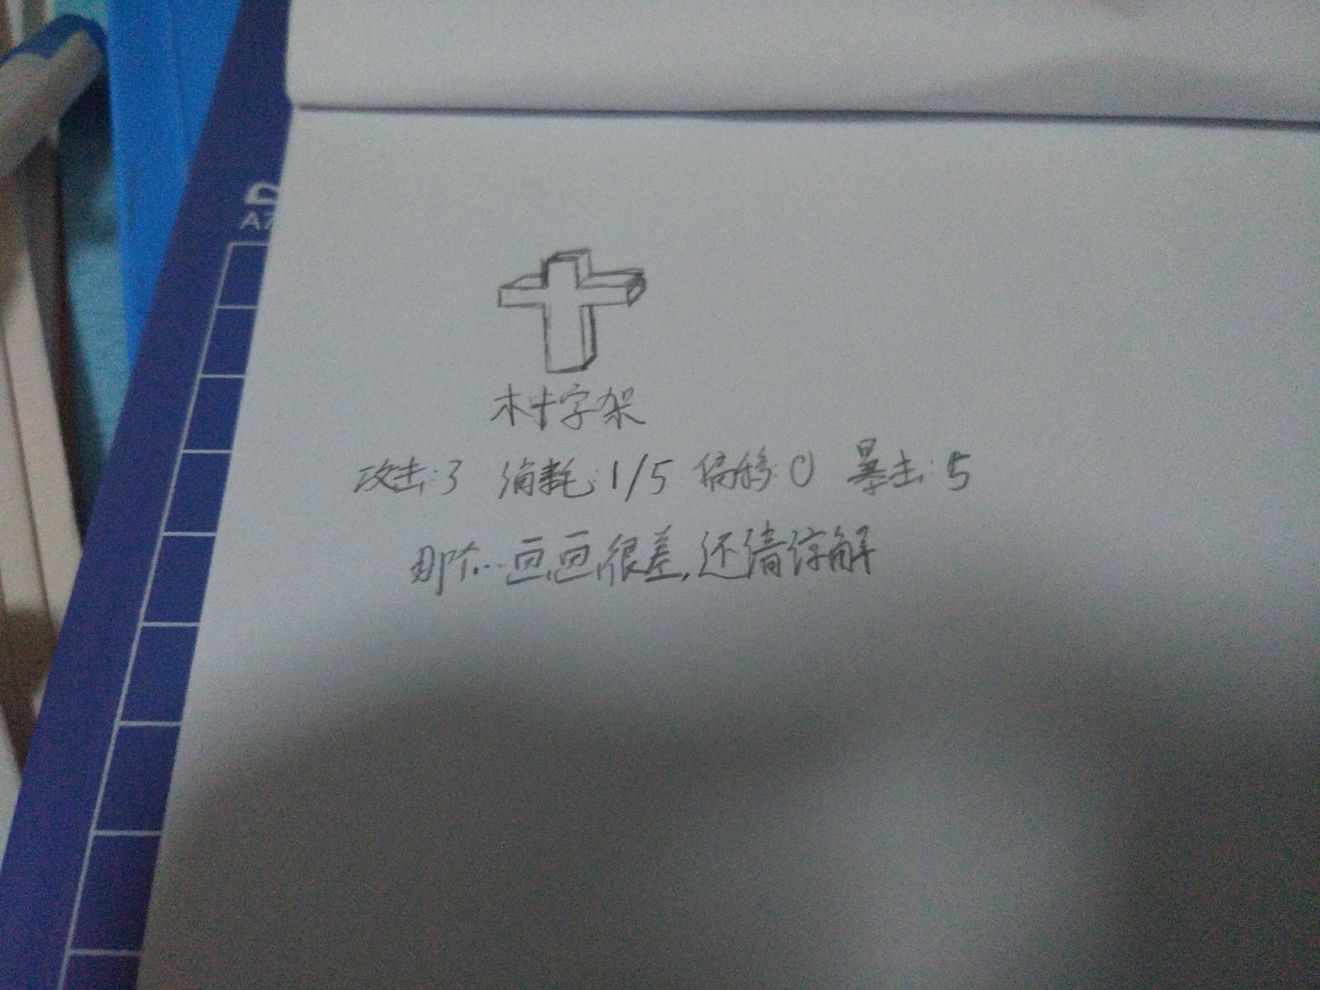 木十字架
攻击:3 消耗:1/5 偏移:0 暴击:5
那个…画画很差,还请谅解